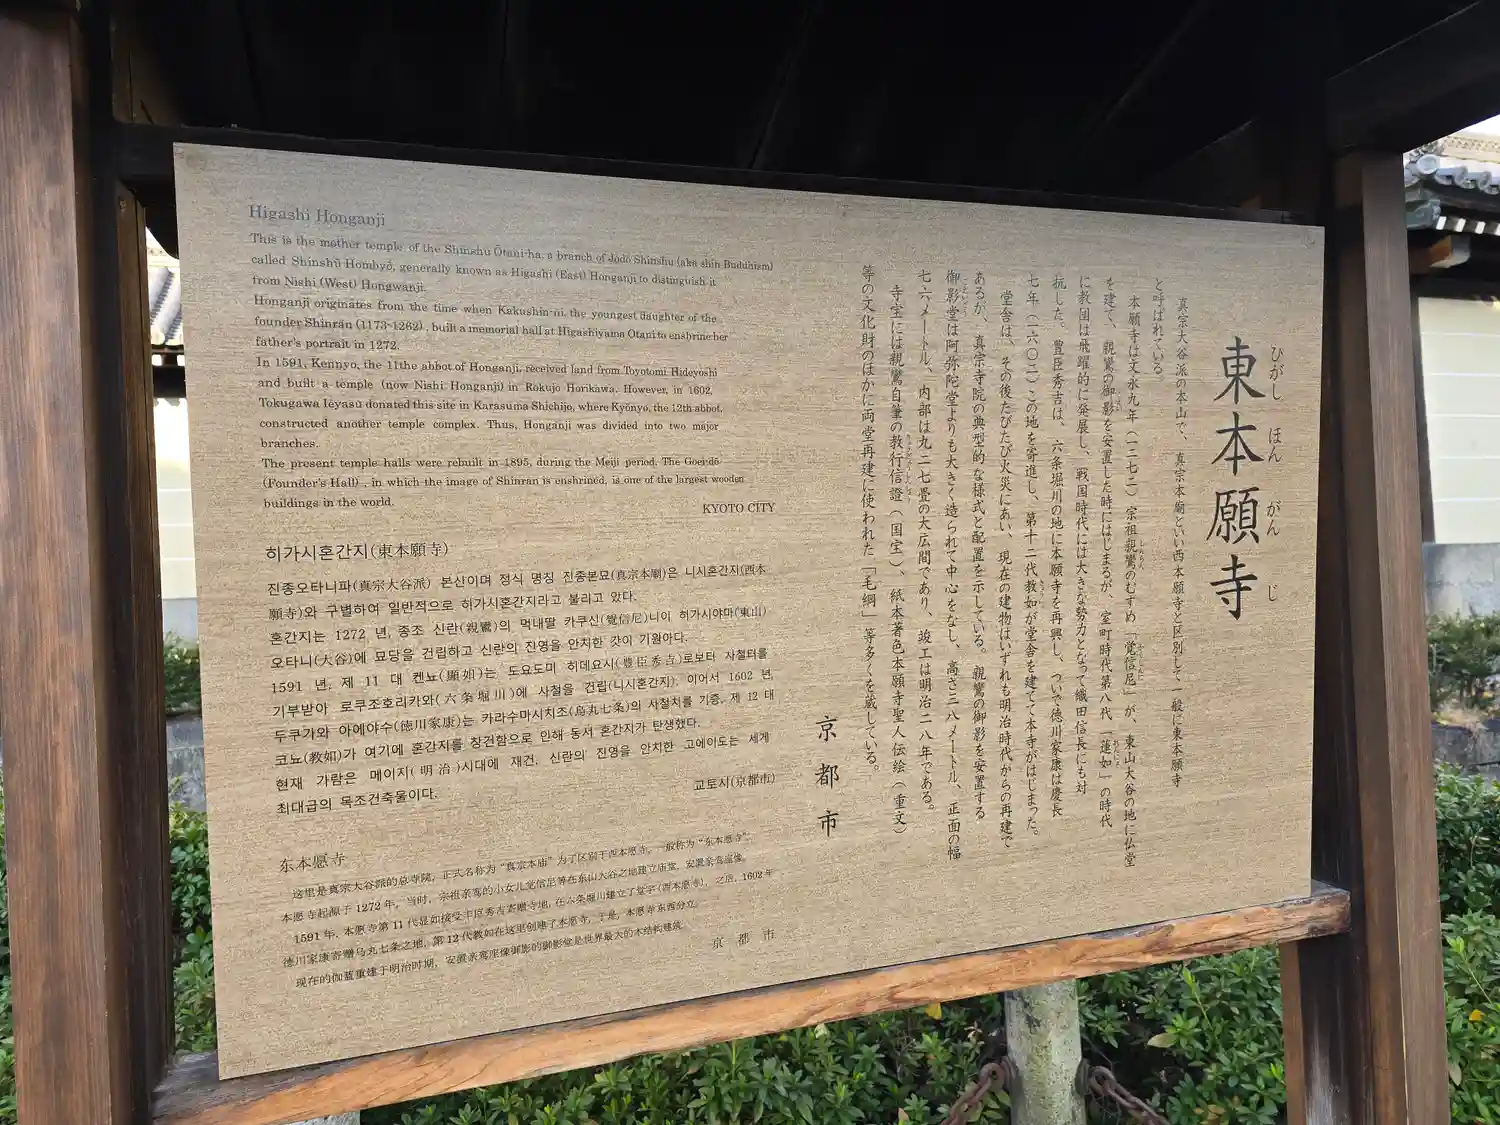 Higashi Honganji
This is the mother temple of the Shinshū Ōtani-ha, a branch of Jōdo Shinshu (aka shin Buduhism)
called Shinshū Hombyō, generally known as Higashi (East) Honganji to distinguish it
from Nishi (West) Hongwanji.
Honganji originates from the time when Kakushin-ni, the youngest daughter of the
founder Shinran (1173-1262), built a memorial hall at Higashiyama Otani to enshrine her
father's portrait in 1272.
In 1591, Kennyo, the 11the abbot of Honganji, received land from Toyotomi Hideyoshi
and built a temple (now Nishi Honganji) in Rokujo Horikawa. However, in 1602,
Tokugawa Ieyasu donated this site in Karasuma Shichijo, where Kyōnyo, the 12th abbot,
constructed another temple complex. Thus, Honganji was divided into two major
branches.
The present temple halls were rebuilt in 1895, during the Meiji period. The Goei-dō
(Founder's Hall), in which the image of Shinran is enshrined, is one of the largest wooden
buildings in the world.
KYOTO CITY
히가시혼간지(東本願寺)
진종오타니파(真宗大谷派) 본산이며 정식 명칭 진종본묘(真宗本廟)은 니시혼간지(西本
願寺)와 구별하여 일반적으로 히가시혼간지라고 불리고 있다.
혼간지는 1272 년, 종조 신란(親鸞)의 막내딸 카쿠신(覚信尼)니이 히가시야마(東山)
오타니(大谷)에 묘당을 건립하고 신란의 진영을 안치한 것이 기원이다.
1591 년, 제 11 대 켄뇨(顯如)는 도요도미 히데요시(豊臣秀吉)로부터 사철터를
기부받아 로쿠조호리카와(六条堀川)에 사철을 건립(니시혼간지), 이어서 1602 년,
두쿠가와 아에야수(徳川家康)는 카라수마시치조(烏丸七条)의 사철치를 기증, 제 12 대
코뇨(教如)가 여기에 혼간지를 창건함으로 인해 동서 혼간지가 탄생했다.
현재 가람은 메이지(明治)시대에 재건, 신란의 진영을 안치한 고에이도는 세계
최대급의 목조건축물이다.
교토시(京都市)
东本愿寺
这里是真宗大谷派的总寺院，正式名称为“真宗本庙”为了区别于西本愿寺，一般称为“东本愿寺”。
本愿寺起源于1272年，当时，宗祖亲鸾的小女儿觉信尼等在东山大谷之地建立庙堂，安置亲鸾遗像。
1591年，本愿寺第11代显如接受丰臣秀吉寄赠寺地，在六条堀川建立了堂宇(西本愿寺)，之后，1602年
德川家康寄赠乌丸七条之地，第12代教如在这里创建了本愿寺，于是，本愿寺东西分立。
现在的伽蓝重建于明治时期，安置亲鸾座像御影的御影堂是世界最大的木结构建筑。
京都市
東本願寺
ひがし ほん がん じ
真宗大谷派の本山で、真宗本廟といい西本願寺と区別して一般に東本願寺
と呼ばれている。
本願寺は文永九年（一二七二）宗祖親鸞のむすめ「覚信尼」が、東山大谷の地に仏堂
を建て、親鸞の御影を安置した時にはじまるが、室町時代第八代「蓮如」の時代
に教団は飛躍的に発展し、戦国時代には大きな勢力となって織田信長にも対
抗した。豊臣秀吉は、六条堀川の地に本願寺を再興し、ついで徳川家康は慶長
七年（一六〇二）この地を寄進し、第十二代教如が堂舎を建てて本寺がはじまった。
堂舎は、その後たびたび火災にあい、現在の建物はいずれも明治時代からの再建で
あるが、真宗寺院の典型的な様式と配置を示している。親鸞の御影を安置する
御影堂は阿弥陀堂よりも大きく造られて中心をなし、高さ三八メートル、正面の幅
七六メートル、内部は九二七畳の大広間であり、竣工は明治二八年である。
寺宝には親鸞自筆の教行信證（国宝）、紙本著色本願寺聖人伝絵（重文）
等の文化財のほかに両堂再建に使われた「毛綱」等多くを蔵している。
京都市